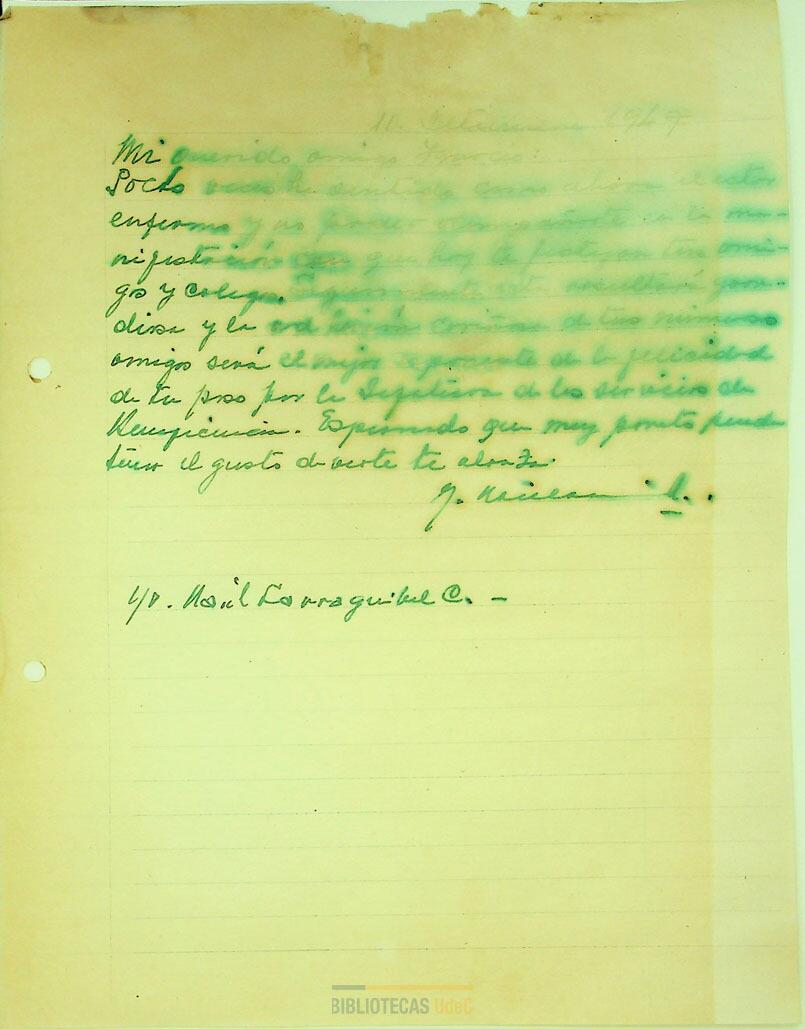 11. Setiembre 1947
Mi querido amigo
Pocas veces he sentido como ahora el estar
enfermo y no poder acompañarte en la ma-
nifestación con que hoy te festejan tus ami-
gos y colegas. Seguramente esta resultará gran-
diosa y la adhesión cariñosa de tus numerosos
amigos será el mejor exponente de la felicidad
de tu paso por la Jefatura de los servicios de
Beneficencia. Esperando que muy pronto pueda
tener el gusto de verte te abraza.
A. -
Raúl Larraguibel C. -
BIBLIOTECAS UdeC